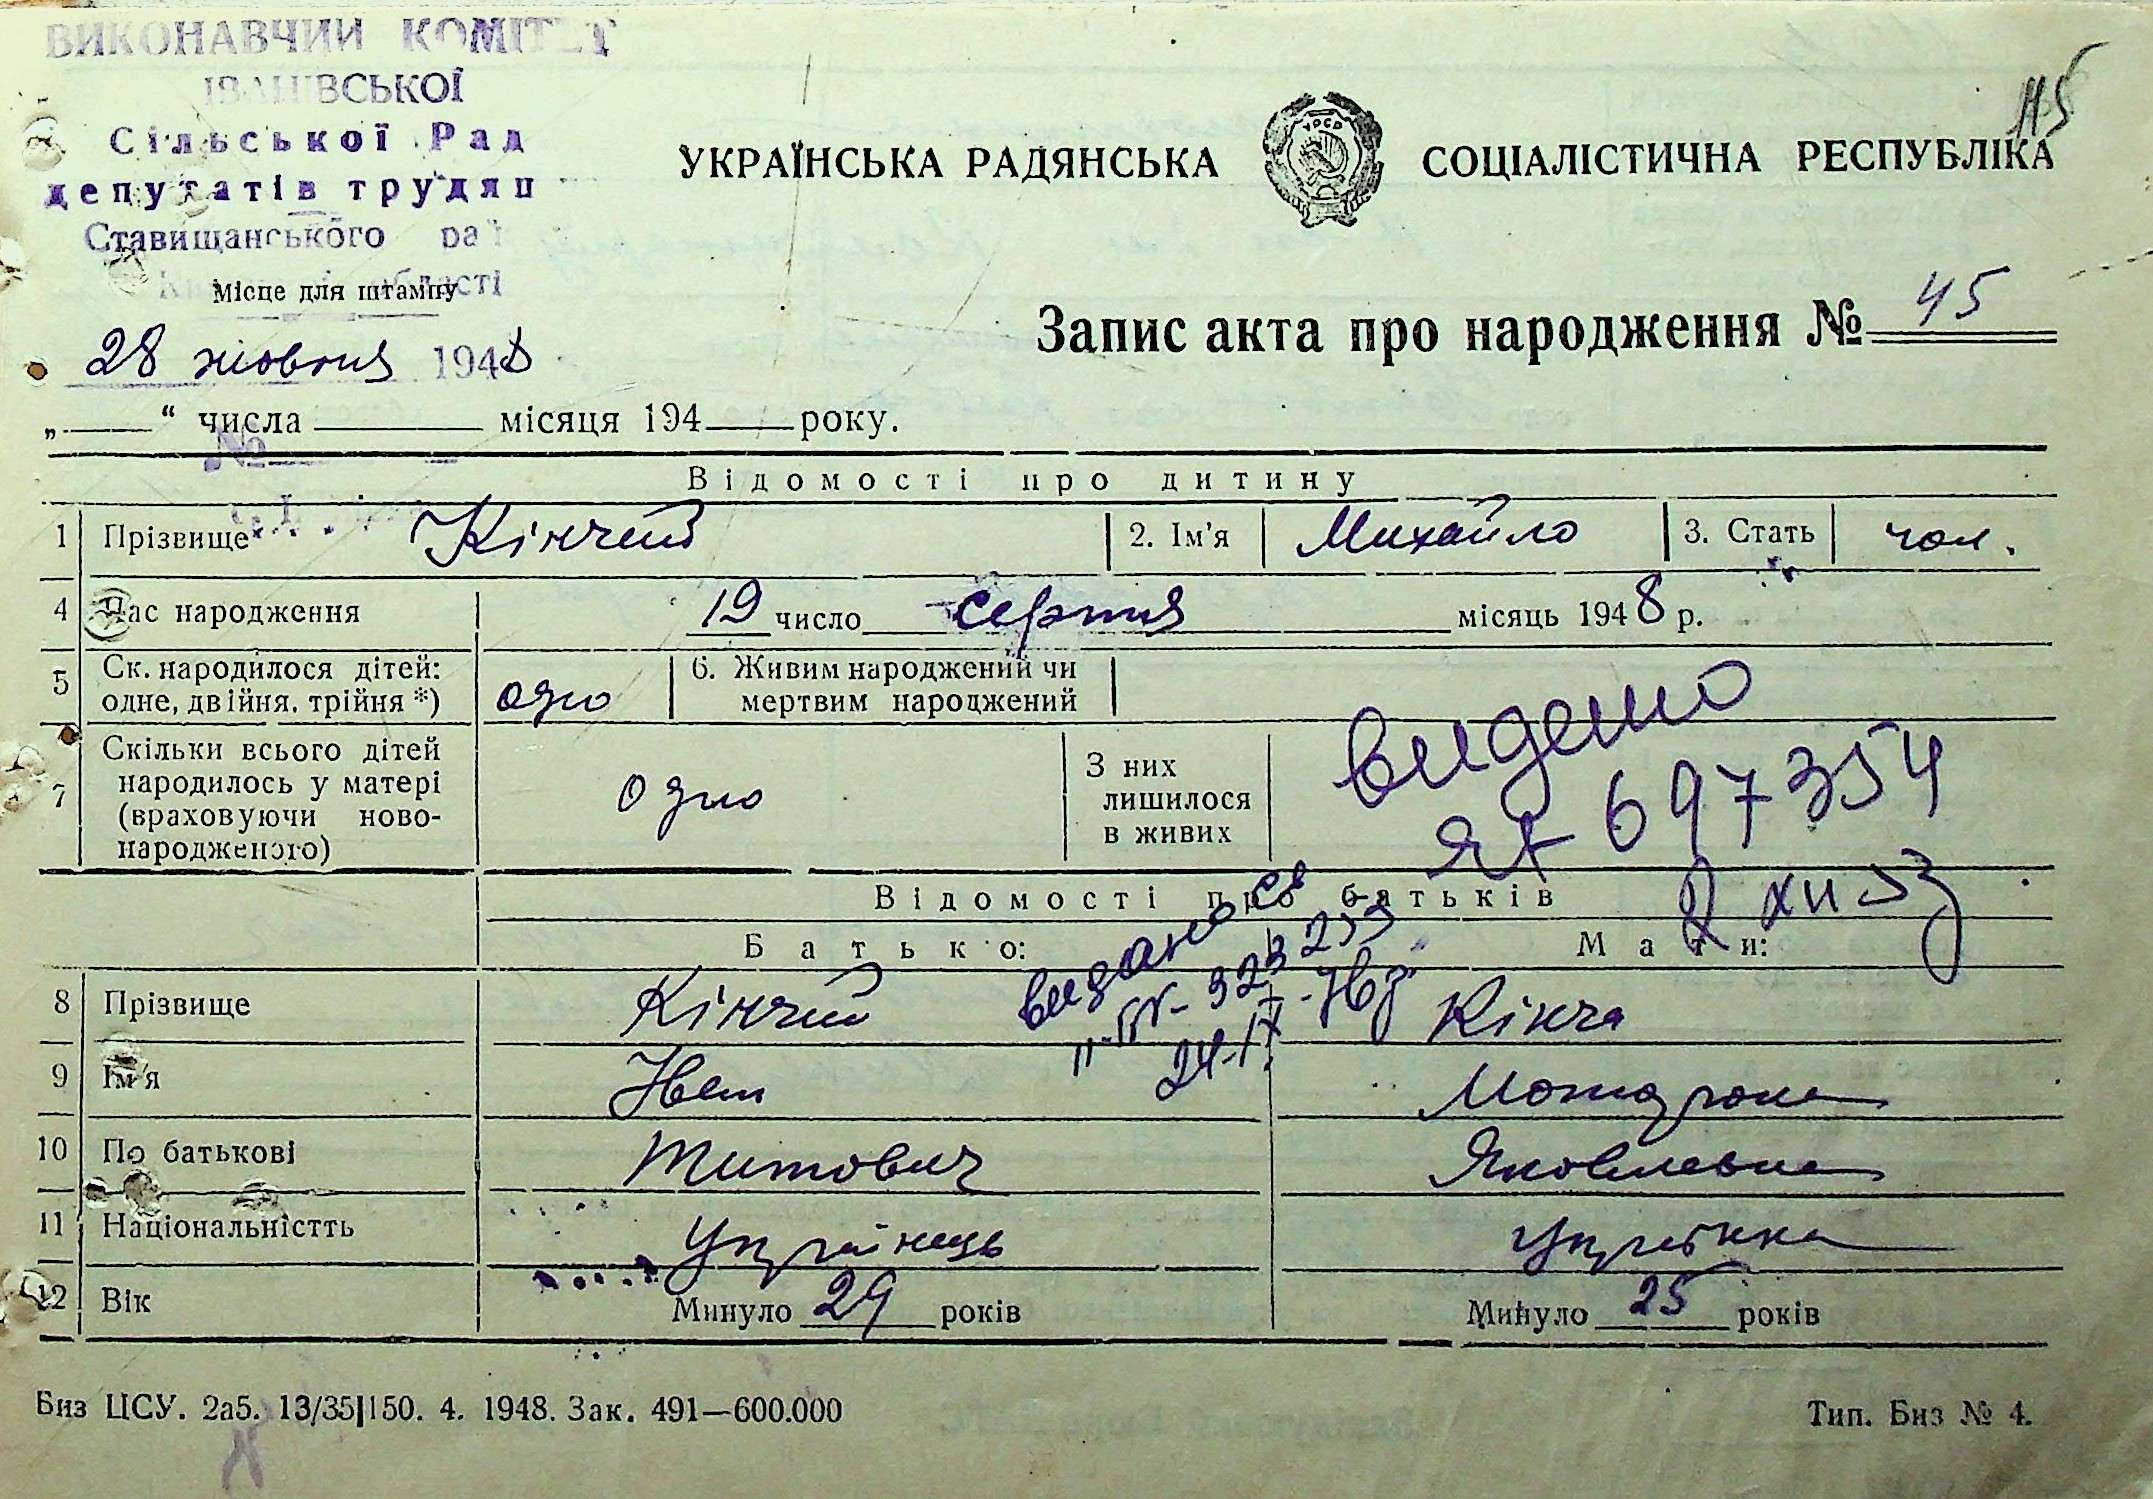 ВИКОНАВЧИЙ КОМІТЕТ
ІВАНІВСЬКОЇ
Сільської Рад
депутатів трудящ
Ставищанського
області
Місце для штампу
28 жовтня 1948
115
УКРАЇНСЬКА РАДЯНСЬКА СОЦІАЛІСТИЧНА РЕСПУБЛІКА
УРСР
Запис акта про народження № 45
„ “ числа місяця 194 року.
№
Відомості про дитину
1 Прізвище Кінчий 2. Ім'я Михайло 3. Стать чол.
4 Час народження 19 число серпня місяць 1948 р.
5 Ск. народилося дітей: одне, двійня, трійня *) одно 6. Живим народжений чи мертвим народжений
7 Скільки всього дітей народилось у матері (враховуючи ново-народженого) одно З них лишилося в живих
видано
ЯК 697354
видано св
323 233
Відомості про батьків
Батько: Мати:
8 Прізвище Кінчий Кінча
9 Ім'я
10 По батькові Титович Яковлевна
11 Національністть Українець Українка
12 Вік Минуло 29 років Минуло 25 років
Биз ЦСУ. 2а5. 13/35|150. 4. 1948. Зак. 491—600.000 Тип. Биз № 4.